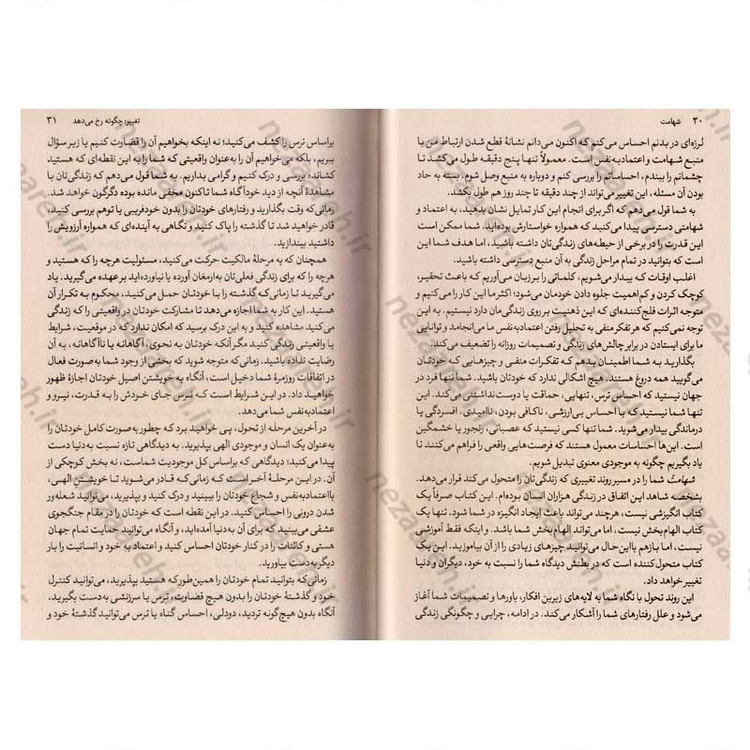 ۳۰ شهامت
لرزه‌ای در بدنم احساس می‌کنم که اکنون می‌دانم نشانهٔ قطع شدن ارتباط من با
منبع شهامت و اعتمادبه‌نفس است. معمولاً تنها پنج دقیقه طول می‌کشد تا
چشمانم را ببندم، احساساتم را بررسی کنم و دوباره به منبع وصل شوم. بسته به حاد
بودن آن مسئله، این تغییر می‌تواند از چند دقیقه تا چند روز هم طول بکشد.
به شما قول می‌دهم که اگر برای انجام این کار تمایل نشان بدهید، به اعتماد و
شهامتی دسترسی پیدا می‌کنید که همواره خواستارش بوده‌اید. شما ممکن است
این قدرت را در برخی از حیطه‌های زندگی‌تان داشته باشید، اما هدف شما این
است که بتوانید در تمام مراحل زندگی به آن منبع دسترسی داشته باشید.
اغلب اوقات که بیدار می‌شویم، کلماتی را بر زبان می‌آوریم که باعث تحقیر،
کوچک کردن و کم‌اهمیت جلوه دادن خودمان می‌شود؛ اکثر ما این کار را می‌کنیم و
متوجه اثرات فلج‌کننده‌ای که این ذهنیت بر روی زندگی‌مان دارد نیستیم. به این
توجه نمی‌کنیم که هر تفکر منفی به تحلیل رفتن اعتمادبه‌نفس ما می‌انجامد و توانایی
ما برای ایستادن در برابر چالش‌های زندگی و تصمیمات روزانه را تضعیف می‌کند.
بگذارید به شما اطمینان بدهم که تفکرات منفی و چیزهایی که خودتان
می‌گویید همه دروغ هستند. هیچ اشکالی ندارد که خودتان باشید. شما تنها فرد در
جهان نیستید که احساس ترس، تنهایی، حماقت یا دوست‌نداشتنی می‌کند. این
تنها شما نیستید که با احساس بی‌ارزشی، ناکافی بودن، ناامیدی، افسردگی یا
درماندگی بیدار می‌شوید. شما تنها کسی نیستید که عصبانی، رنجور یا خشمگین
است. این‌ها احساسات معمول هستند که فرصت‌هایی واقعی را فراهم می‌کنند تا
یاد بگیریم چگونه به موجودی معنوی تبدیل شویم.
شهامت شما را در مسیر روند تغییری که زندگی‌تان را متحول می‌کند قرار می‌دهد.
بشخصه شاهد این اتفاق در زندگی هزاران انسان بوده‌ام. این کتاب صرفاً یک
کتاب انگیزشی نیست، هرچند می‌تواند باعث ایجاد انگیزه در شما شود. تنها یک
کتاب الهام‌بخش نیست، اما می‌تواند الهام‌بخش شما باشد. و اینکه فقط آموزشی
نیست، اما باز هم بااین‌حال می‌توانید چیزهای زیادی را از آن بیاموزید. این یک
کتاب متحول‌کننده است که در بطنش دیدگاه شما را نسبت به خود، دیگران و دنیا
تغییر خواهد داد.
این روند تحول با نگاه شما به لایه‌های زیرین افکار، باورها و تصمیمات شما آغاز
می‌شود و علل رفتارهای شما را آشکار می‌کند. در ادامه، چرایی و چگونگی زندگی
تغییر: چگونه رخ می‌دهد ۳۱
براساس ترس را کشف می‌کنید؛ نه اینکه بخواهیم آن را قضاوت کنیم یا زیر سؤال
ببریم، بلکه می‌خواهیم آن را به‌عنوان واقعیتی که شما را به این نقطه‌ای که هستید
کشانده بررسی و درک کنیم و گرامی بداریم. به شما قول می‌دهم که زندگی‌تان با
مشاهدهٔ آنچه از دید خودآگاه شما تاکنون مخفی مانده بوده دگرگون خواهد شد.
زمانی‌که وقت بگذارید و رفتارهای خودتان را بدون خودفریبی یا توهم بررسی کنید،
قادر خواهید شد تا گذشته را پاک کنید و نگاهی به آینده‌ای که همواره آرزویش را
داشتید بیندازید.
همچنان که به مرحلهٔ مالکیت حرکت می‌کنید، مسئولیت هرچه را که هستید و
هرچه را که برای زندگی فعلی‌تان به‌ارمغان آورده یا نیاورده‌اید بر عهده می‌گیرید. یاد
می‌گیرید تا زمانی‌که گذشته را با خودتان حمل می‌کنید، محکوم به تکرار آن
هستید. این کار به شما اجازه می‌دهد تا مشارکت خودتان در واقعیتی را که زندگی
می‌کنید مشاهده کنید و به این درک برسید که امکان ندارد که در موقعیت، شرایط
یا واقعیتی زندگی کنید مگر آنکه خودتان به نحوی، آگاهانه یا ناآگاهانه، به آن
رضایت نداده باشید. زمانی‌که متوجه شوید که بخشی از وجود شما به‌صورت فعال
در اتفاقات روزمرهٔ شما دخیل است، آنگاه به خویشتن اصیل خودتان اجازهٔ ظهور
خواهید داد. در این شرایط است که ترس جای خردش را به قدرت، نیرو و
اعتمادبه‌نفس شما می‌دهد.
در آخرین مرحله از تحول، پی خواهید برد که چطور به‌صورت کامل خودتان را
به‌عنوان یک انسان و موجودی الهی بپذیرید. به دیدگاهی تازه نسبت به‌دنیا دست
پیدا می‌کنید؛ دیدگاهی که براساس کل موجودیت شماست، نه بخش کوچکی از
آن. در این مرحلهٔ آخر است که زمانی‌که قادر می‌شوید تا خویشتن الهی،
بااعتمادبه‌نفس و شجاع خودتان را ببینید و درک کنید و بپذیرید، می‌توانید شعله‌ور
شدن درونی را احساس کنید. در این نقطه است که خودتان را در مقام جنگجوی
عشقی می‌بینید که برای آن به‌دنیا آمده‌اید، و آنگاه می‌توانید حمایت تمام جهان
هستی و کائنات را در کنار خودتان احساس کنید و اعتماد به خود و انسانیت را بار
دیگر به‌دست بیاورید.
زمانی‌که بتوانید تمام خودتان را همین‌طور که هستید بپذیرید، می‌توانید کنترل
گذشته و خودتان را بدون هیچ قضاوت، ترس یا سرزنشی به‌دست بگیرید،
آنگاه بدون هیچ‌گونه تردید، دودلی، احساس گناه یا ترس می‌توانید گذشتهٔ خود و
nezaareh.ir